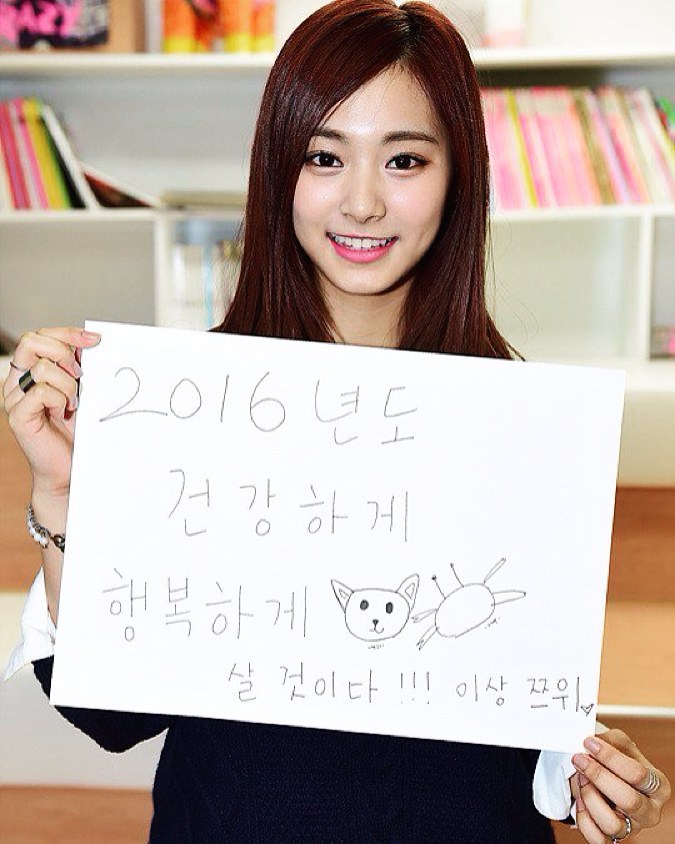 CRAZY
2016년도
건강하게
행복하게
살 것이다 !!! 이상 쯔위